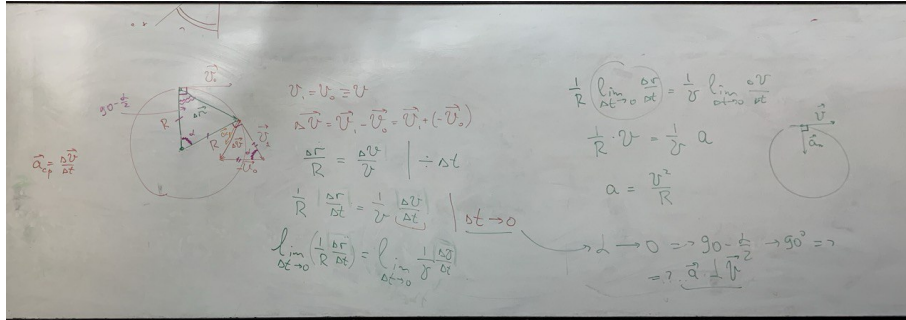 90-α/2
R
α
Δr⃗
v⃗₀
R
Δv⃗
v⃗₁
-v⃗₀
a⃗ср = Δv⃗/Δt
v₁ = v₀ ≡ v
Δv⃗ = v⃗₁ - v⃗₀ = v⃗₁ + (-v⃗₀)
Δr/R = Δv/v | ÷ Δt
1/R |Δr/Δt| = 1/v |Δv/Δt| | Δt → 0
lim Δt→0 (1/R Δr/Δt) = lim Δt→0 1/v Δv/Δt
1/R lim Δt→0 Δr/Δt = 1/v lim Δt→0 Δv/Δt
1/R · v = 1/v a
a = v²/R
v⃗
→ α → 0 => 90 - α/2 → 90° =>
=> a⃗ ⊥ v⃗